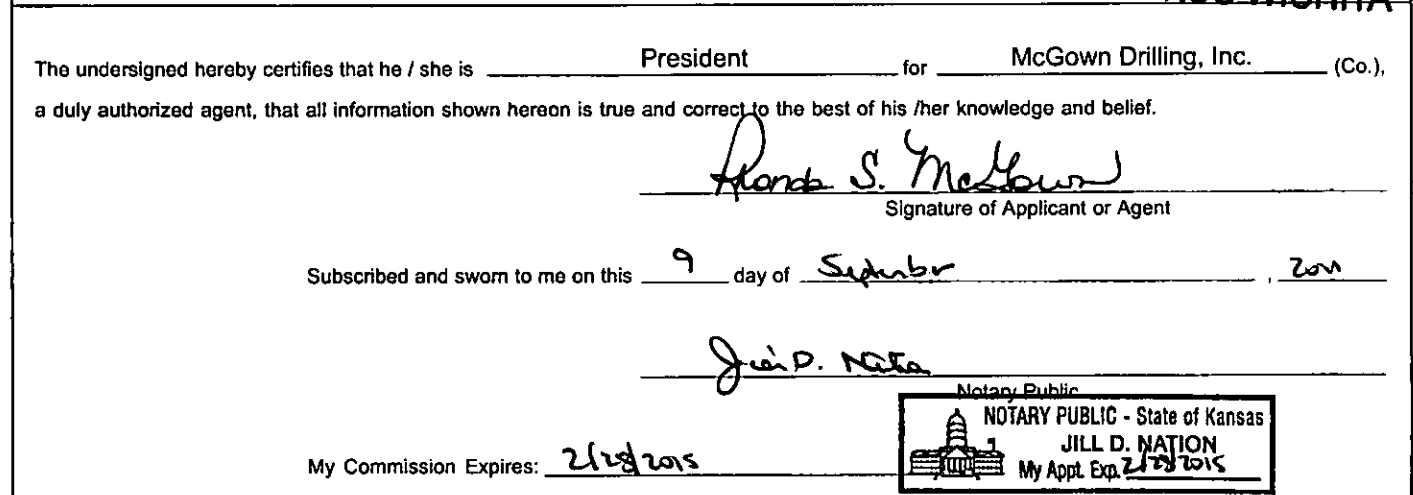 The undersigned hereby certifies that he / she is President for McGown Drilling, Inc. (Co.),
a duly authorized agent, that all information shown hereon is true and correct to the best of his /her knowledge and belief.
Rhonda S. McGown
Signature of Applicant or Agent
Subscribed and sworn to me on this 9 day of September, 2011
Jill D. Nation
Notary Public
NOTARY PUBLIC - State of Kansas
JILL D. NATION
My Appt. Exp. 2/28/2015
My Commission Expires: 2/28/2015